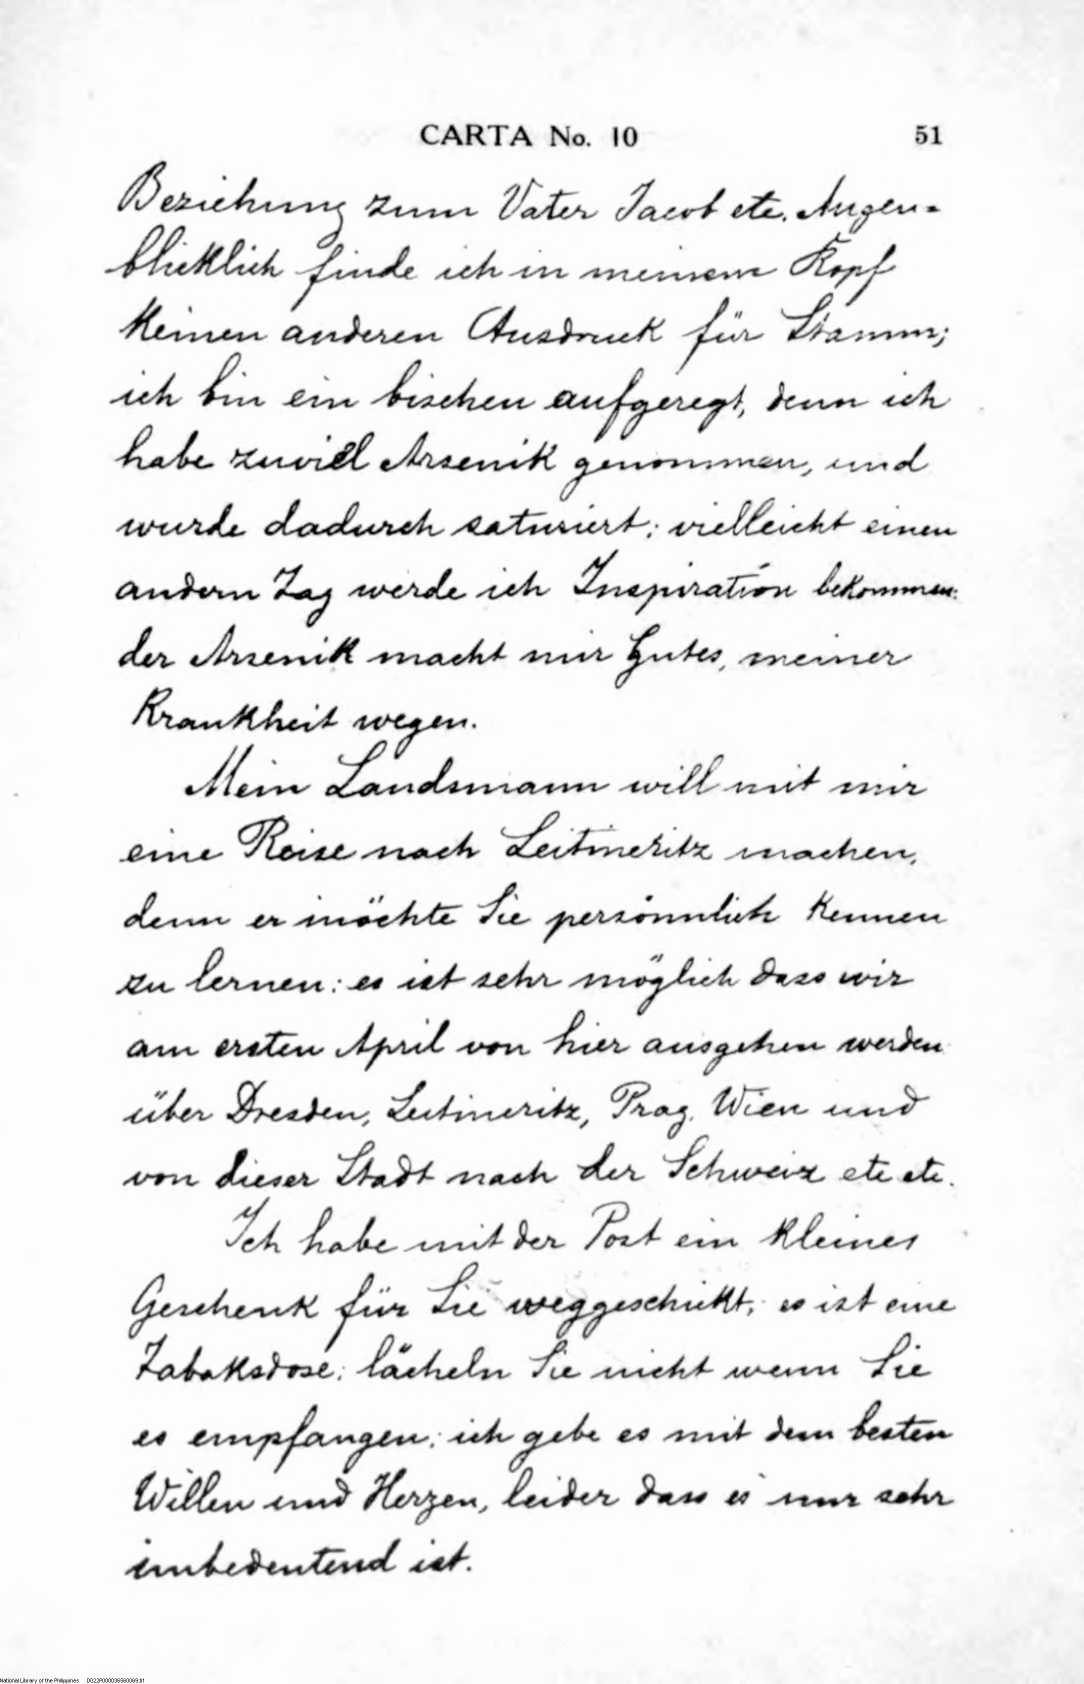 CARTA No. 10 51
Beziehung zum Vater Jacob etc. Augen=
blicklich finde ich in meinem Kopf
keinen anderen Ausdruck für Stamm;
ich bin ein bischen aufgeregt, denn ich
habe zuviel Arsenik genommen, und
wurde dadurch saturiert; vielleicht einen
andern Tag werde ich Inspiration bekommen:
der Arsenik macht mir Gutes, meiner
Krankheit wegen.
Mein Landsmann will mit mir
eine Reise nach Leitmeritz machen,
denn er möchte Sie persönnlich kennen
zu lernen: es ist sehr möglich dass wir
am ersten April von hier ausgehen werden
über Dresden, Leitmeritz, Prag, Wien und
von dieser Stadt nach der Schweiz etc etc.
Ich habe mit der Post ein kleines
Geschenk für Sie weggeschickt; es ist eine
Tabaksdose: lächeln Sie nicht wenn Sie
es empfangen: ich gebe es mit dem besten
Willen und Herzen, leider dass es nur sehr
unbedeutend ist.
National Library of the Philippines